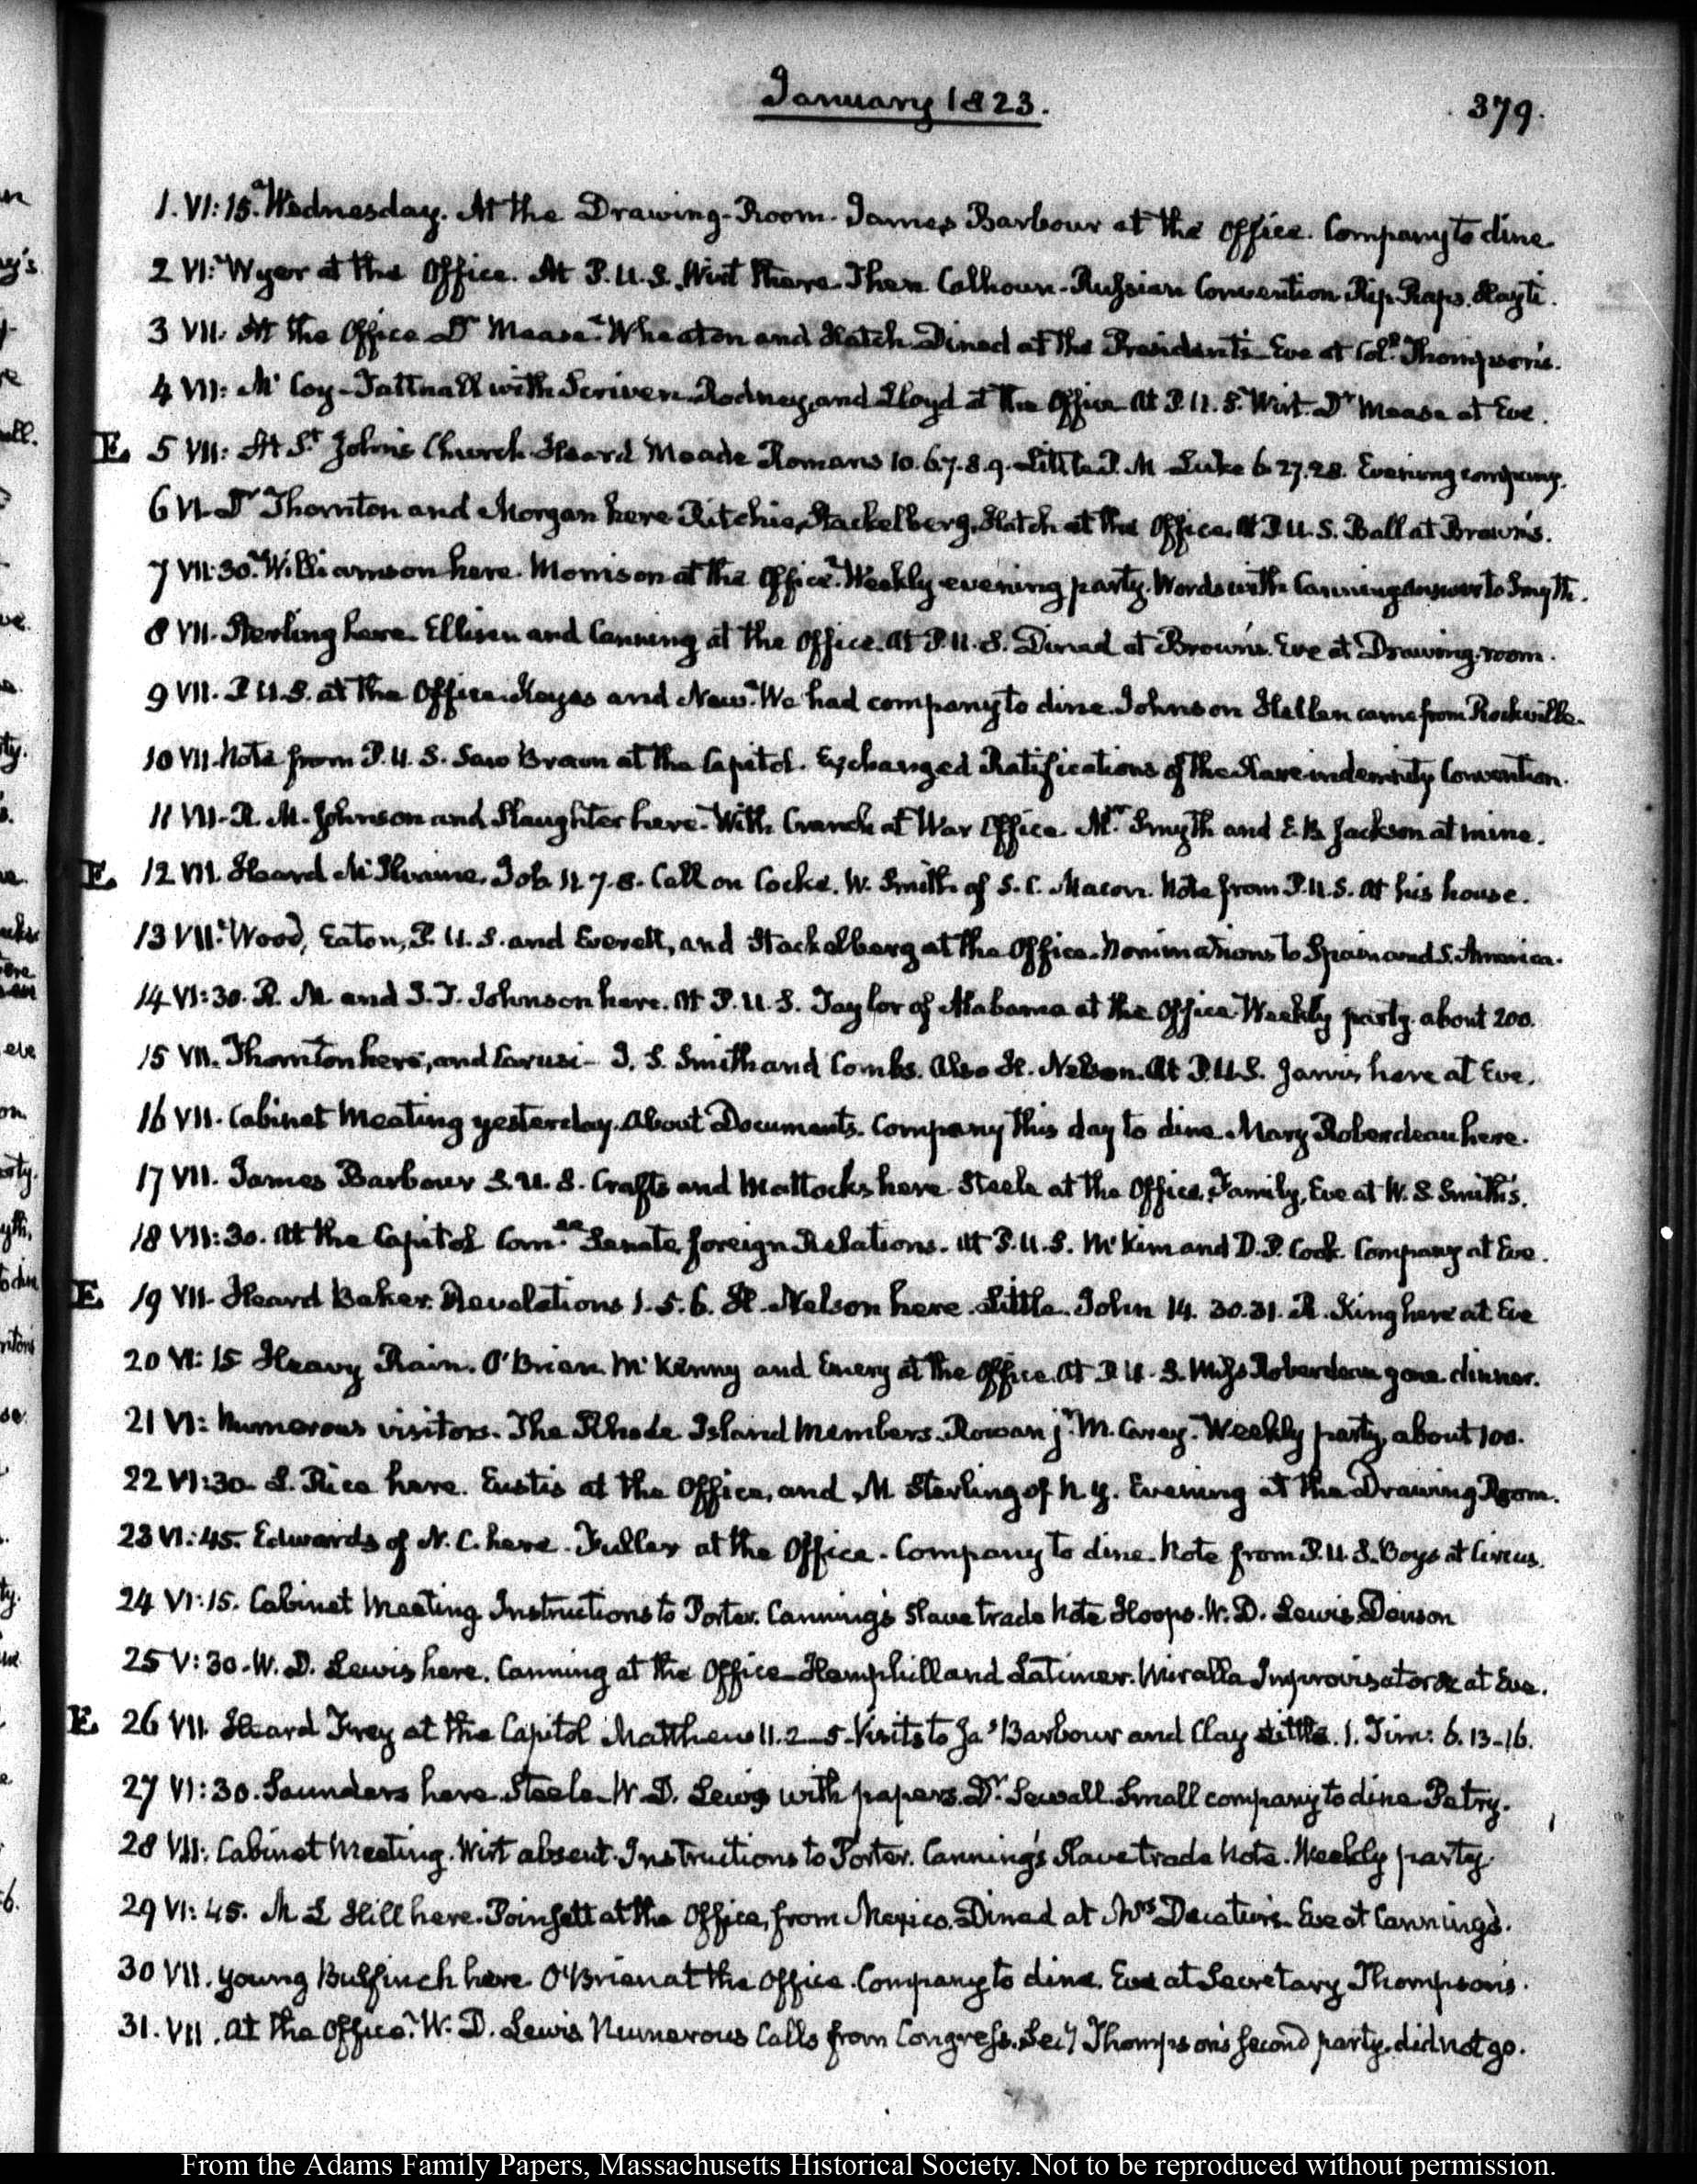 January 1823.
379.
1. VI:15. Wednesday. At the Drawing-Room. James Barbour at the Office. Company to dine
2 VI: Wyer at the Office. At P.U.S. Wirt there. Then Calhoun. Russian Convention Rip-Raps. Hayti.
3 VII. At the Office Dr Mease. Wheaton and Hatch. Dined at the President's Eve at Col. Thompson's.
4 VII: McCoy-Tattnall with Scriven. Rodney, and Lloyd at the Office At P.U.S. Wirt. Dr Mease at Eve.
E. 5 VII: At St. John's Church. Heard Meade Romans 10.6.7.8.9. Little P.M Luke 6.27.28. Evening company.
6 VI. Dr Thornton and Morgan here. Ritchie, Stackelberg, Hatch at the Office. At P.U.S. Ball at Brown's.
7 VII:30. Williamson here. Morrison at the Office. Weekly evening party. Words with Canning answer to Smyth.
8 VII. Sterling here. Ellison and Canning at the Office. At P.U.S. Dined at Brown's. Eve at Drawing-room.
9 VII. P.U.S. at the Office. Keyes and New. We had company to dine. Johnson Hellen came from Rockville.
10 VII. Note from P.U.S. Saw Brown at the Capitol. Exchanged Ratifications of the Slave indemnity Convention.
11 VII. R. M. Johnson and Slaughter here. With Cranch at War Office. Mr. Smyth and E.B. Jackson at mine.
E. 12 VII. Heard McIlvaine. Job 11.7.8. Call on Cocke. W. Smith of S.C. Macon. Note from P.U.S. At his house.
13 VII. Wood, Eaton, P.U.S. and Everett, and Stackelberg at the Office. Nominations to Spain and S. America.
14 VI:30. R. M. and J.T. Johnson here. At P.U.S. Taylor of Alabama at the Office. Weekly party. about 200.
15 VII. Thornton here, and Carusi- J. S. Smith and Combs. Also H. Nelson. At P.U.S. Jarvis here at Eve.
16 VII. Cabinet Meeting yesterday. About Documents. Company this day to dine. Mary Roberdeau here.
17 VII. James Barbour S.U.S. Crafts and Mattocks here. Steele at the Office. Family, Eve at W.S. Smith's.
18 VII:30. At the Capitol Com.ee Senate foreign Relations. At P.U.S. McKim and D.P. Cook. Company at Eve.
E. 19 VII. Heard Baker. Revelations 1.5.6. H. Nelson here. Little. John 14. 30.31. R. King here at Eve
20 VI:15 Heavy Rain. O'Brien. McKenny and Emery at the Office. At P.U.S. Miss Roberdeau gone dinner.
21 VI: Numerous visitors. The Rhode Island Members. Rowan jr. M. Carey. Weekly party, about 100.
22 VI:30. L. Rice here. Eustis at the Office, and M Sterling of N.Y. Evening at the Drawing Room.
23 VI:45. Edwards of N.C. here. Fuller at the Office. Company to dine. Note from P.U.S. Boys at Circus.
24 VI:15. Cabinet Meeting. Instructions to Porter. Canning's Slave trade Note Hoops. W. D. Lewis
25 V:30. W. D. Lewis here. Canning at the Office. Hemphill and Latimer. Miralla Improvisatore at Eve.
E. 26 VII Heard Frey at the Capitol Matthew 11.2-5. Visits to Jas Barbour and Clay Little. 1. Tim: 6.13-16.
27 VI:30. Saunders here. Steele. W. D. Lewis with papers. Dr. Sewall. Small company to dine. Petry.
28 VII: Cabinet Meeting. Wirt absent. Instructions to Porter. Canning's Slave trade Note. Weekly party
29 VI:45. M L Hill here. Poinsett at the Office, from Mexico. Dined at Mrs Decatur's. Eve at Canning's.
30 VII. young Bulfinch here O'Brien at the Office. Company to dine. Eve at Secretary Thompson's.
31. VII. At the Office. W. D. Lewis. Numerous Calls from Congress. Secy Thompson's second party, did not go.
From the Adams Family Papers, Massachusetts Historical Society. Not to be reproduced without permission.